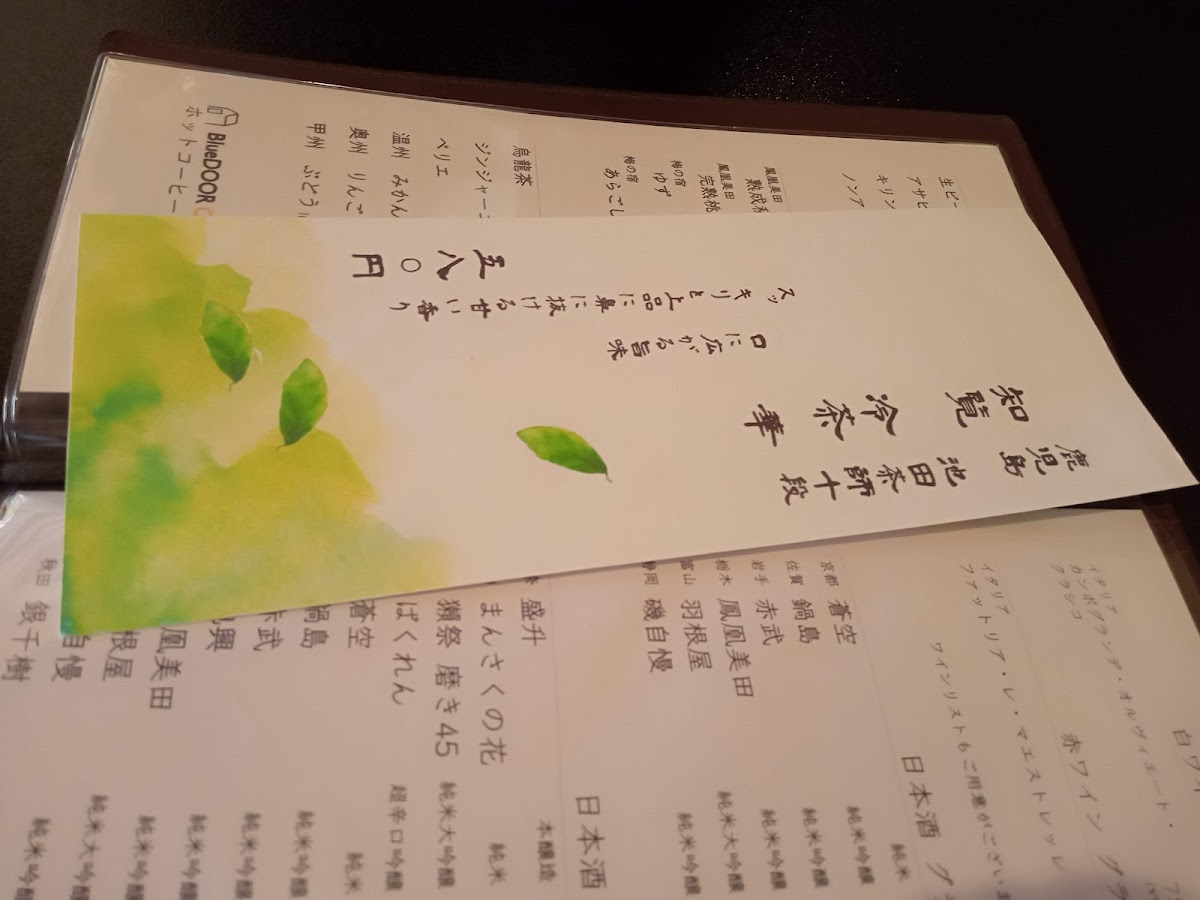 生ビー
アサヒ
キリン
ノンア
鳳凰美田 熟成
鳳凰美田 完熟桃
梅の宿 ゆず
梅の宿 あらごし
烏龍茶
ジンジャー
ペリエ
温州 みかん
奥州 りんご
甲州 ぶどう
BlueDOOR
ホットコーヒー
鹿児島
池田茶師十段
知覧
冷茶
華
口に広がる旨味
スッキリと上品に鼻に抜ける甘い香り
五八〇円
白ワイ
イタリア
カンポグランデ・オルヴィエート・
クラシコ
赤ワイン グラ
イタリア
ファットリア・レ・マエストレッレ
ワインリストもご用意がございま
日本酒 グ
京都 蒼空 純米
佐賀 鍋島 純米吟醸
岩手 赤武 純米吟醸
栃木 鳳凰美田 純米吟醸
富山 羽根屋 純米大吟醸
静岡 磯自慢 純米吟醸
日本酒
盛升 本醸造
まんさくの花 純米
獺祭 磨き45 純米大吟醸
ばくれん 超辛口吟醸
蒼空 純米
鍋島 純米吟醸
赤武 純米吟醸
純米吟醸
凰美田 純米吟醸
根屋 純米大吟醸
自慢
秋田 銀千樹 純米吟醸